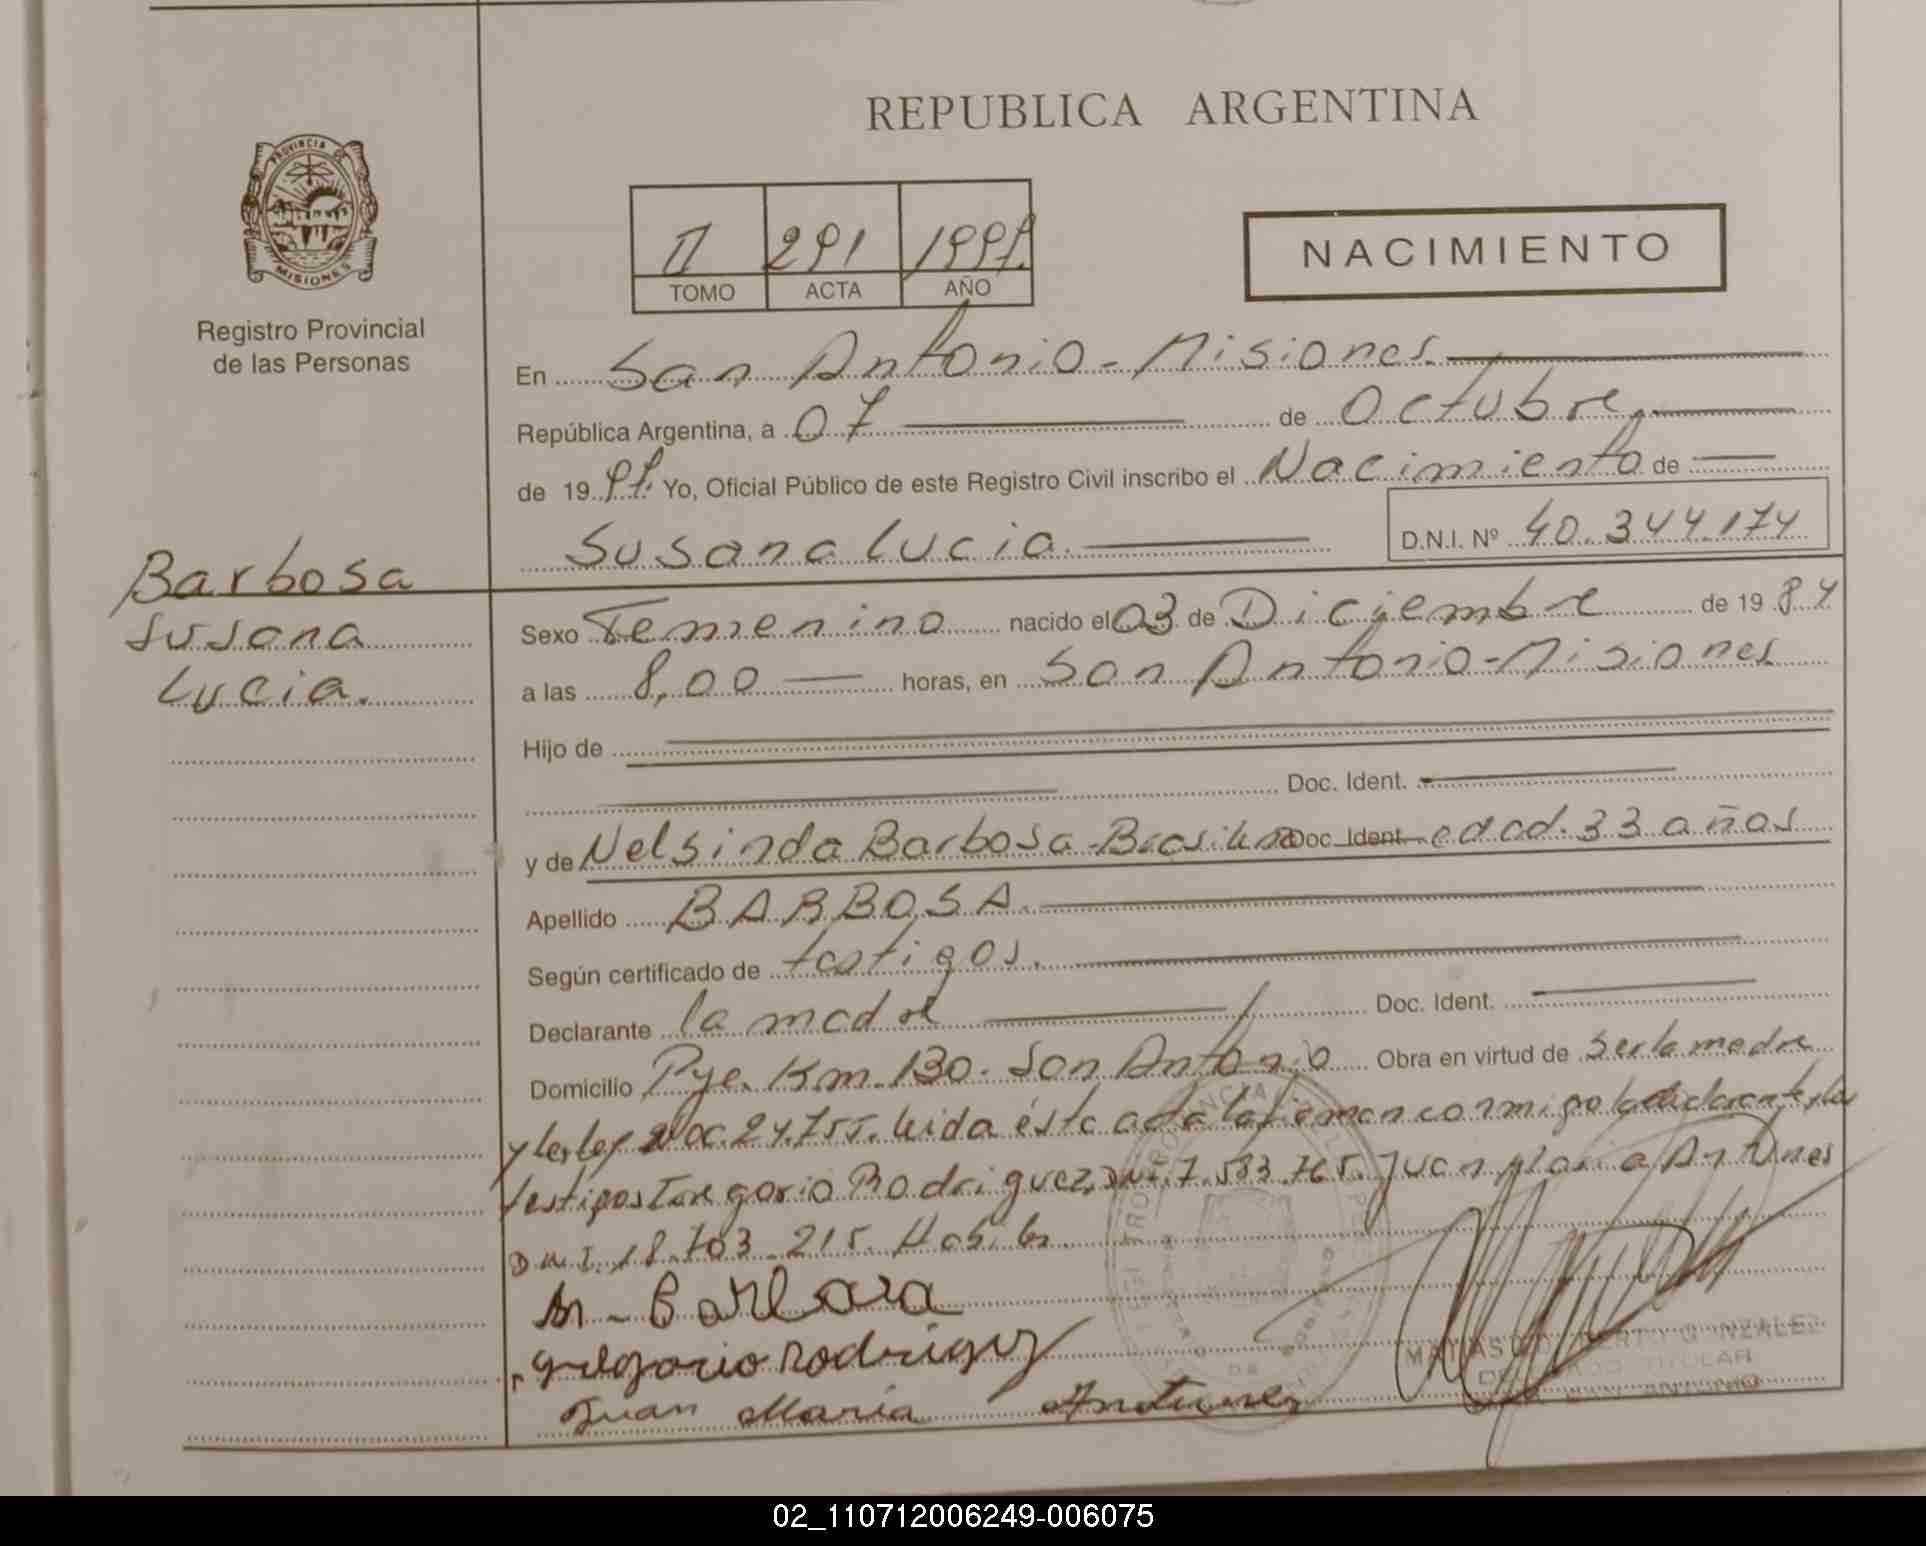 REPUBLICA ARGENTINA
PROVINCIA DE
MISIONES
Registro Provincial
de las Personas
II 291 1997.
TOMO ACTA AÑO
NACIMIENTO
En San Antonio - Misiones.
República Argentina, a 07 de Octubre,
de 19 97. Yo, Oficial Público de este Registro Civil inscribo el Nacimiento de
Susana Lucia. D.N.I. Nº 40.344.174
Barbosa
Susana
Lucia.
Sexo Femenino nacido el 03 de Diciembre de 19 84
a las 8,00 horas, en San Antonio - Misiones
Hijo de
Doc. Ident.
y de Nelsinda Barbosa - Brasilera Doc. Ident. edad. 33 años
Apellido BARBOSA.
Según certificado de testigos.
Declarante la madre Doc. Ident.
Domicilio Pje. Km. 130. San Antonio Obra en virtud de ser la madre
y la ley 24.755. Leida ésta acta la firman conmigo la declarante y los
testigos Gregorio Rodriguez, DNI. 7.583.765. Juan Maria Antunes
D.N.I. 18.703.215. Habiles
Gregorio Rodriguez
Juan Maria Antunes
TITULAR
SAN ANTONIO
02_110712006249-006075